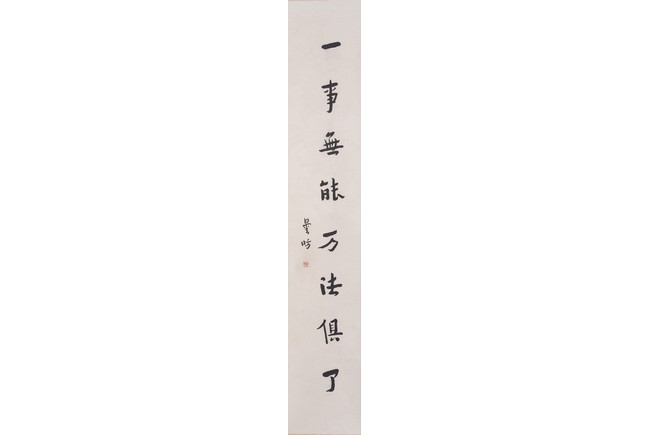 一事無能万法俱了
曇昉